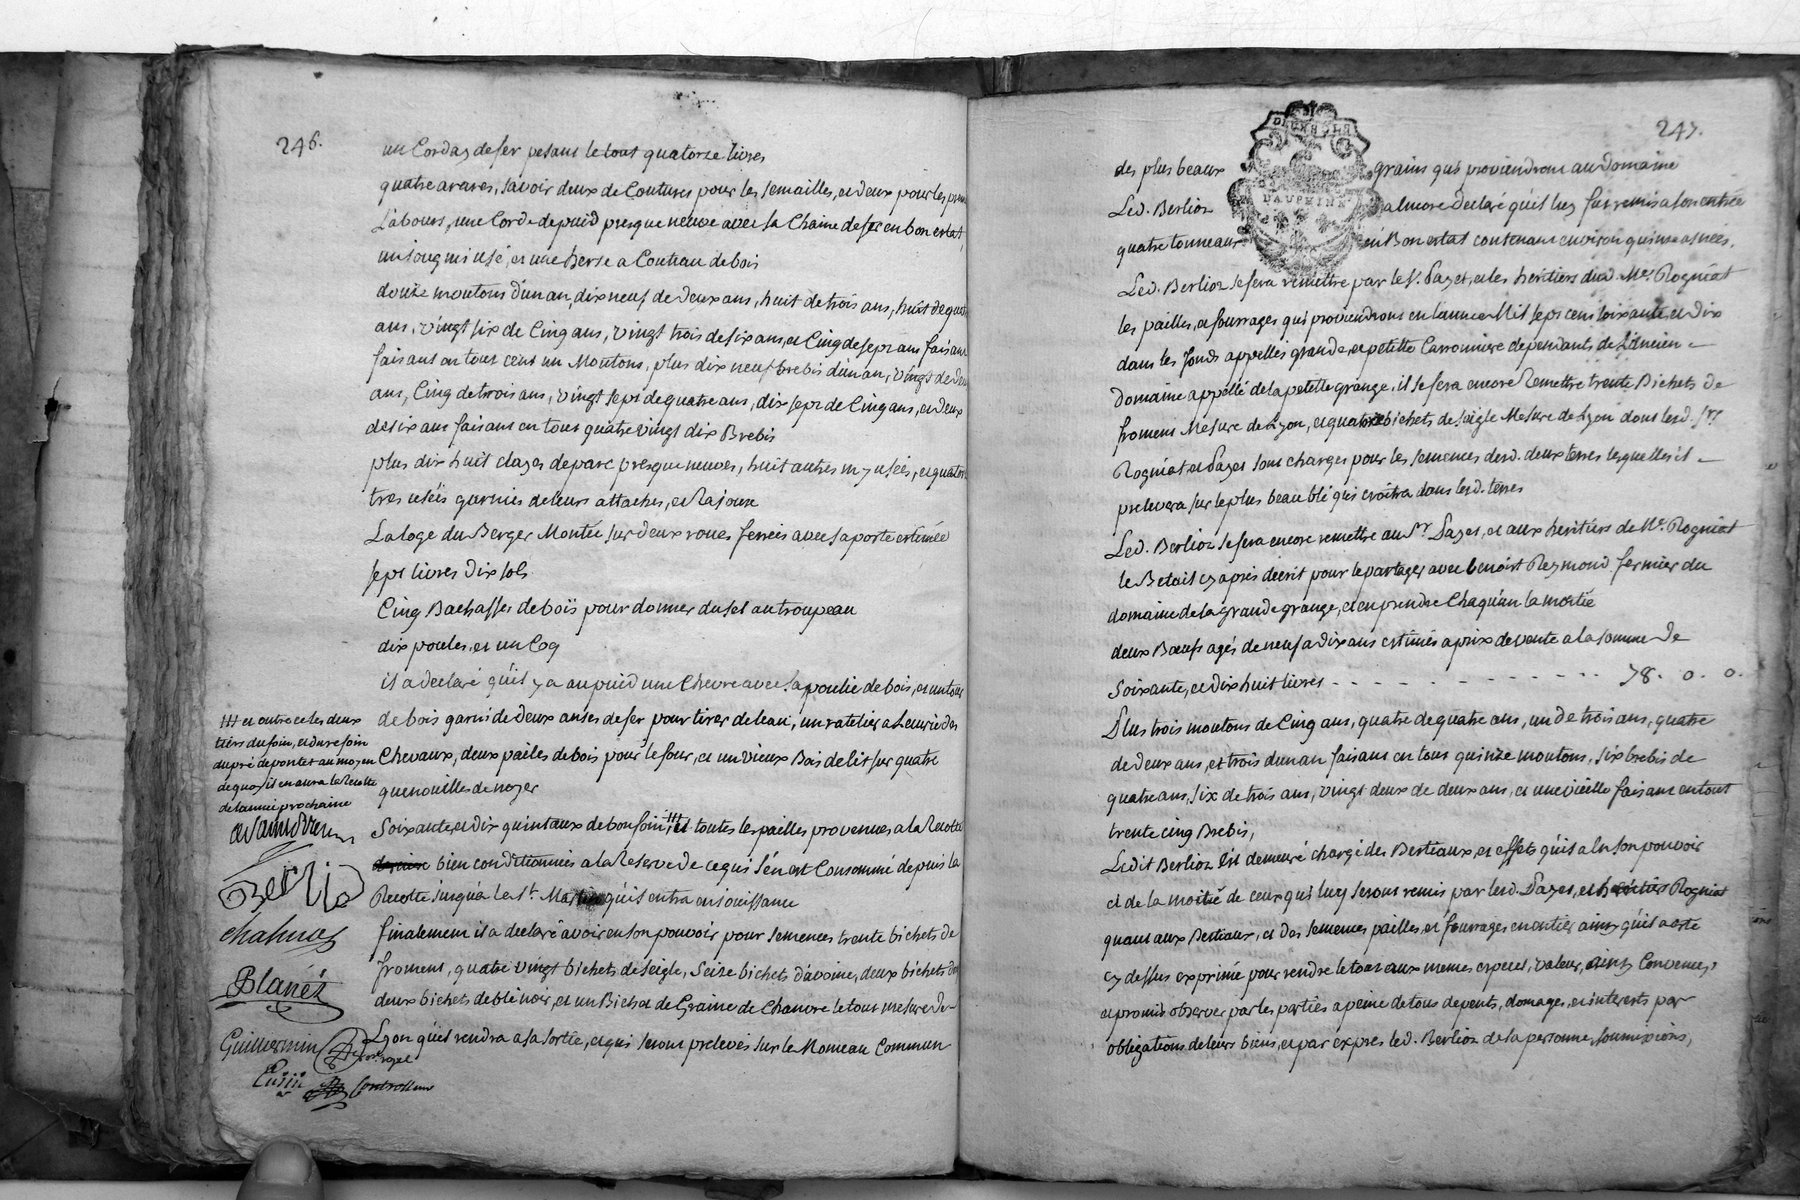 246.
un Corday de fer pesant le tout quatorze livres
quatre araires, savoir deux de Coutures pour les semailles, et deux pour les
Labours, une Corde de puid presque neuve avec sa Chaine de fer en bon estat
un joug mi usé, et une herse a Couteau de bois
douze moutons d'un an, dix neuf de deux ans, huit de trois ans, huit de quatre
ans, vingt six de Cinq ans, vingt trois de six ans, et Cinq de sept ans faisant
faisant en tout cent un Moutons, plus dix neuf brebis d'un an, vingt de deux
ans, Cinq de trois ans, vingt sept de quatre ans, dix sept de Cinq ans, et deux
de six ans faisant en tout quatre vingt dix Brebis
plus dix huit clayes de parc presque neuves, huit autres my usées, et quatorze
tres usées garnies de leurs attaches, et
La loge du Berger Montée sur deux roues ferrées avec sa porte estimée
sept livres dix sols
Cinq Bachasses de bois pour donner du sel au troupeau
dix poules, et un Coq
il a declaré qu'il y a au puid une Chevre avec sa poulie de bois, et un
de bois garni de deux anses de fer pour tirer de l'eau, un ratelier a L'ecurie des
Chevaux, deux paëles de bois pour le four, et un vieux Bois de lit sur quatre
quenouilles de noyer
Soixante, et dix quintaux de bon foin, ₶ et toutes les pailles provenues a la Recolte
bien conditionnées a la Reserve de ce qui s'en est Consommé depuis la
Recolte jusqu'a la St. Martin qu'il entra en jouissance
finalement il a declaré avoir en son pouvoir pour semences trente bichets de
froment, quatre vingt bichets de seigle, seize bichets d'avoine, deux bichets
deux bichets de blé noir, et un Bichet de Graine de Chanvre le tout mesure de
Lyon qu'il rendra a sa sortie, et qui seront prelevés sur le Monceau Commun
₶ et outre ce les deux
tiers du foin, et du refoin
du pré de pontet au moyen
de quoy il en aura la Recolte
de l'année prochaine
Berlioz
Chahuet
Blanét
Guillermin
Eusin
Controlleur
247.
DAUPHINÉ
des plus beaux grains qui proviendront au domaine
Led. Berlioz a encore declaré qu'il luy fut remis a son entrée
quatre tonneaux en Bon estat contenant environ quinze asnées.
Led. Berlioz se fera remettre par le Sr. Pazet, et les heritiers dud. Me. Rogniat
les pailles, et fourrages qui proviendront en l'année Mil sept cent soixante, et dix
dans les fonds appellés grande, et petitte Carronniere dependants de L'ancien
domaine appellé de la petitte grange, il se fera encore Remettre trente Bichets de
froment Mesure de Lyon, et quatre bichets de seigle Mesure de Lyon dont lesd. Srs
Rogniat et Pazet sont chargés pour les semences desd. deux terres lesquelles il
prelevera sur le plus beau blé qui croîtra dans lesd. terres
Led. Berlioz se fera encore remettre au Sr. Pazet, et aux heritiers de Me. Rogniat
le Betail cy après decrit pour le partager avec benoist Reymond fermier du
domaine de la grande grange, et en prendre Chaqu'un la moitié
deux Bœufs agés de neuf a dix ans estimés a prix de vente a la somme de
soixante, et dix huit livres - - - - - - - - - - - - 78. 0. 0.
Plus trois moutons de Cinq ans, quatre de quatre ans, un de trois ans, quatre
de deux ans, et trois d'un an faisant en tout quinze moutons, six brebis de
quatre ans, six de trois ans, vingt deux de deux ans, et une vieille faisant en tout
trente cinq Brebis,
Ledit Berlioz est demeuré chargé des Bestiaux, et effets qu'il a en son pouvoir
et de la moitié de ceux qui luy seront remis par lesd. Pazet, et heritiers Rogniat
quant aux Bestiaux, et des semences pailles, et fourrages en entier ainsy qu'il a esté
cy dessus exprimé pour rendre le tout aux memes especes, valeur, ainsy Convenu,
et promis observer par les parties a peine de tous depents, domages, et interets par
obligations de leurs biens, et par exprès led. Berlioz de sa personne, soumissions,